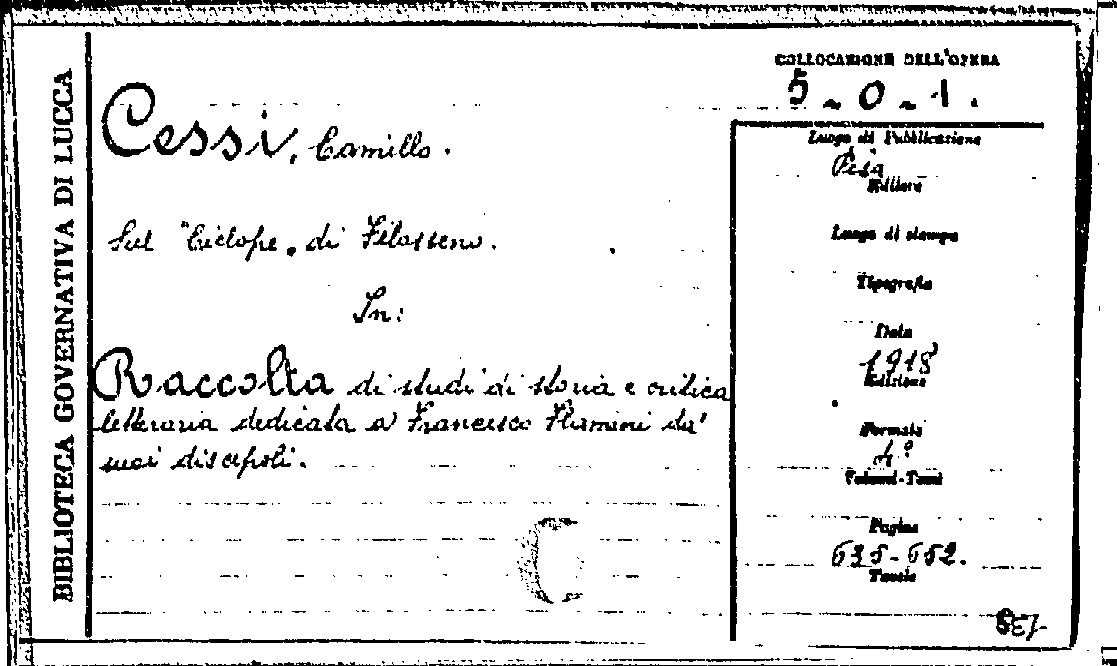 BIBLIOTECA GOVERNATIVA DI LUCCA
COLLOCAZIONE DELL'OPERA
5-0-1.
Cessi, Camillo.
Sul "Ciclope" di Filosseno.
In:
Raccolta di studi di storia e critica
letteraria dedicata a Francesco Flamini da'
suoi discepoli.
Luogo di Pubblicazione
Pisa
Editore
Luogo di stampa
Tipografia
Data
1918
Edizione
Formato
4º
Volumi-Tomi
Pagine
635-652.
Tavole
C